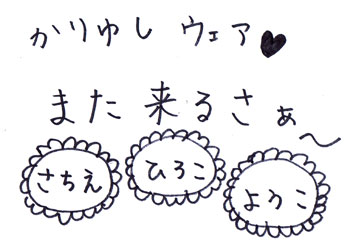 かりゆし ウェア♥
また来るさぁ〜
さちえ ひろこ ようこ